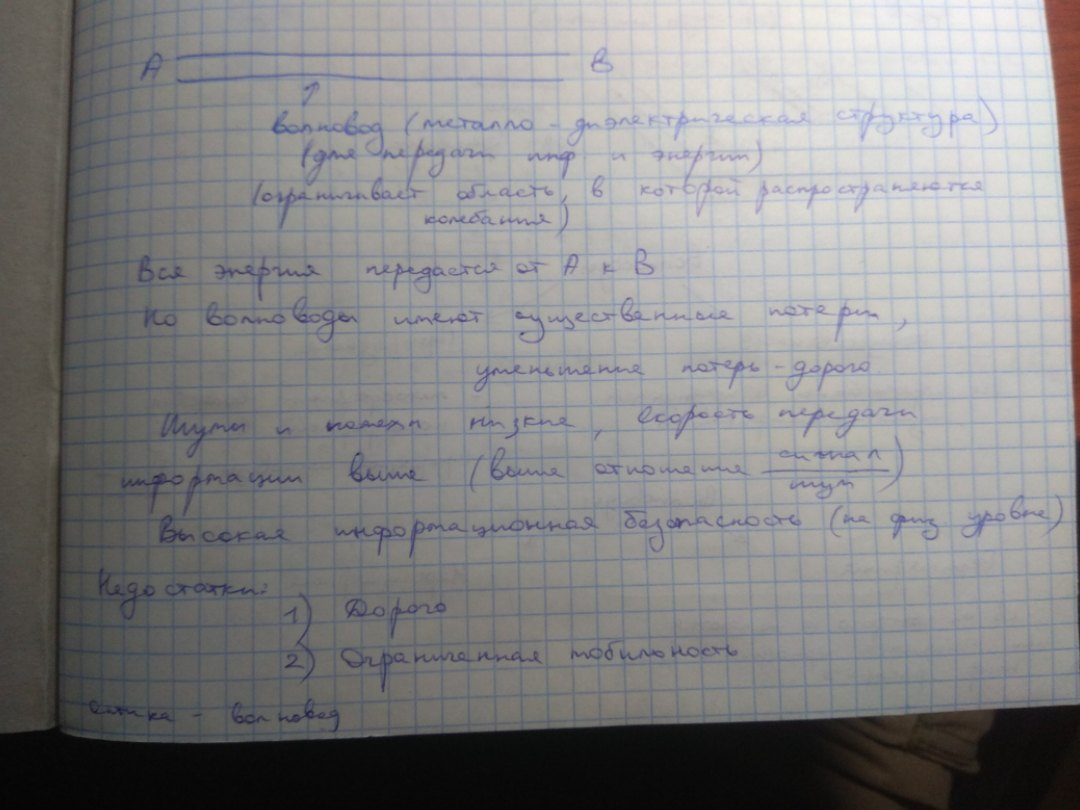 А В
волновод (металло-диэлектрическая структура)
(для передачи инф и энергии)
(ограничивает область, в которой распространяются
колебания)
Вся энергия передастся от А к В
Но волноводы имеют существенные потери,
уменьшение потерь - дорого
Шумы и помехи низкие, скорость передачи
информации выше (выше отношение сигнал/шум)
Высокая информационная безопасность (на физ уровне)
Недостатки:
1) Дорого
2) Ограниченная мобильность
оптика - волновод